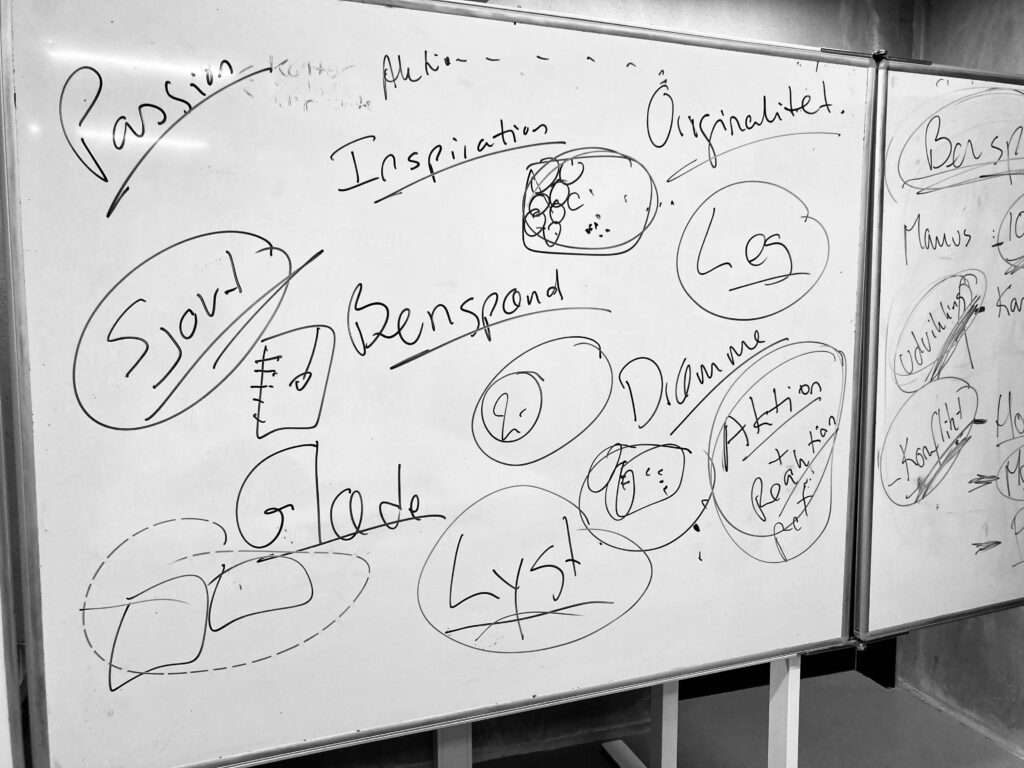 Passion
Aktion - - - -
Inspiration
Originalitet.
Leg
Sjovt
Benspænd
2.
Drømme
Aktion
+
Reaktion
Glæde
Lyst
Bensp
Manus
10
Udvikling
Ka
Konflikt